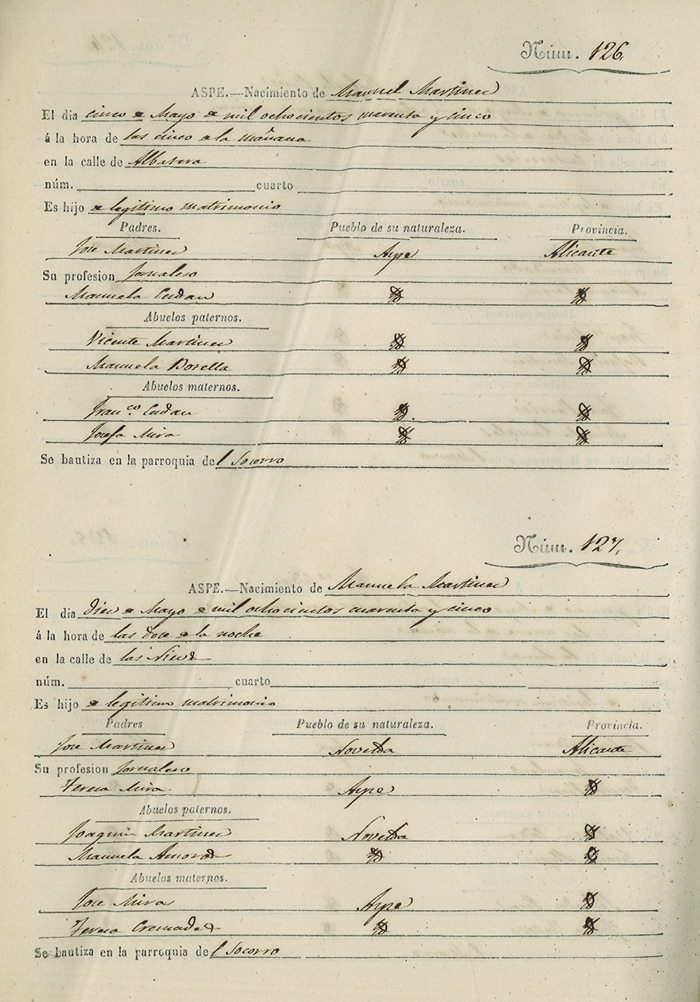 Núm. 126.
ASPE.—Nacimiento de Manuel Martinez
El dia cinco de Mayo de mil ochocientos cuarenta y cinco
á la hora de las cinco de la mañana
en la calle de
núm. cuarto
Es hijo de legitimo matrimonio
Padres. Pueblo de su naturaleza. Provincia.
Jose Martinez Aspe Alicante
Su profesion Jornalero
Manuela
Abuelos paternos.
Vicente Martinez
Manuela
Abuelos maternos.
Franco.
Josefa Mira
Se bautiza en la parroquia del Socorro
Núm. 127.
ASPE.—Nacimiento de Manuela Martinez
El dia diez de Mayo de mil ochocientos cuarenta y cinco
á la hora de las doce de la noche
en la calle de las Nieves
núm. cuarto
Es hijo de legitimo matrimonio
Padres Pueblo de su naturaleza. Provincia.
Jose Martinez Novelda Alicante
Su profesion Jornalero
Teresa Mira Aspe
Abuelos paternos.
Joaquin Martinez Novelda
Manuela Amoros
Abuelos maternos.
Jose Mira Aspe
Teresa Cremades
Se bautiza en la parroquia del Socorro